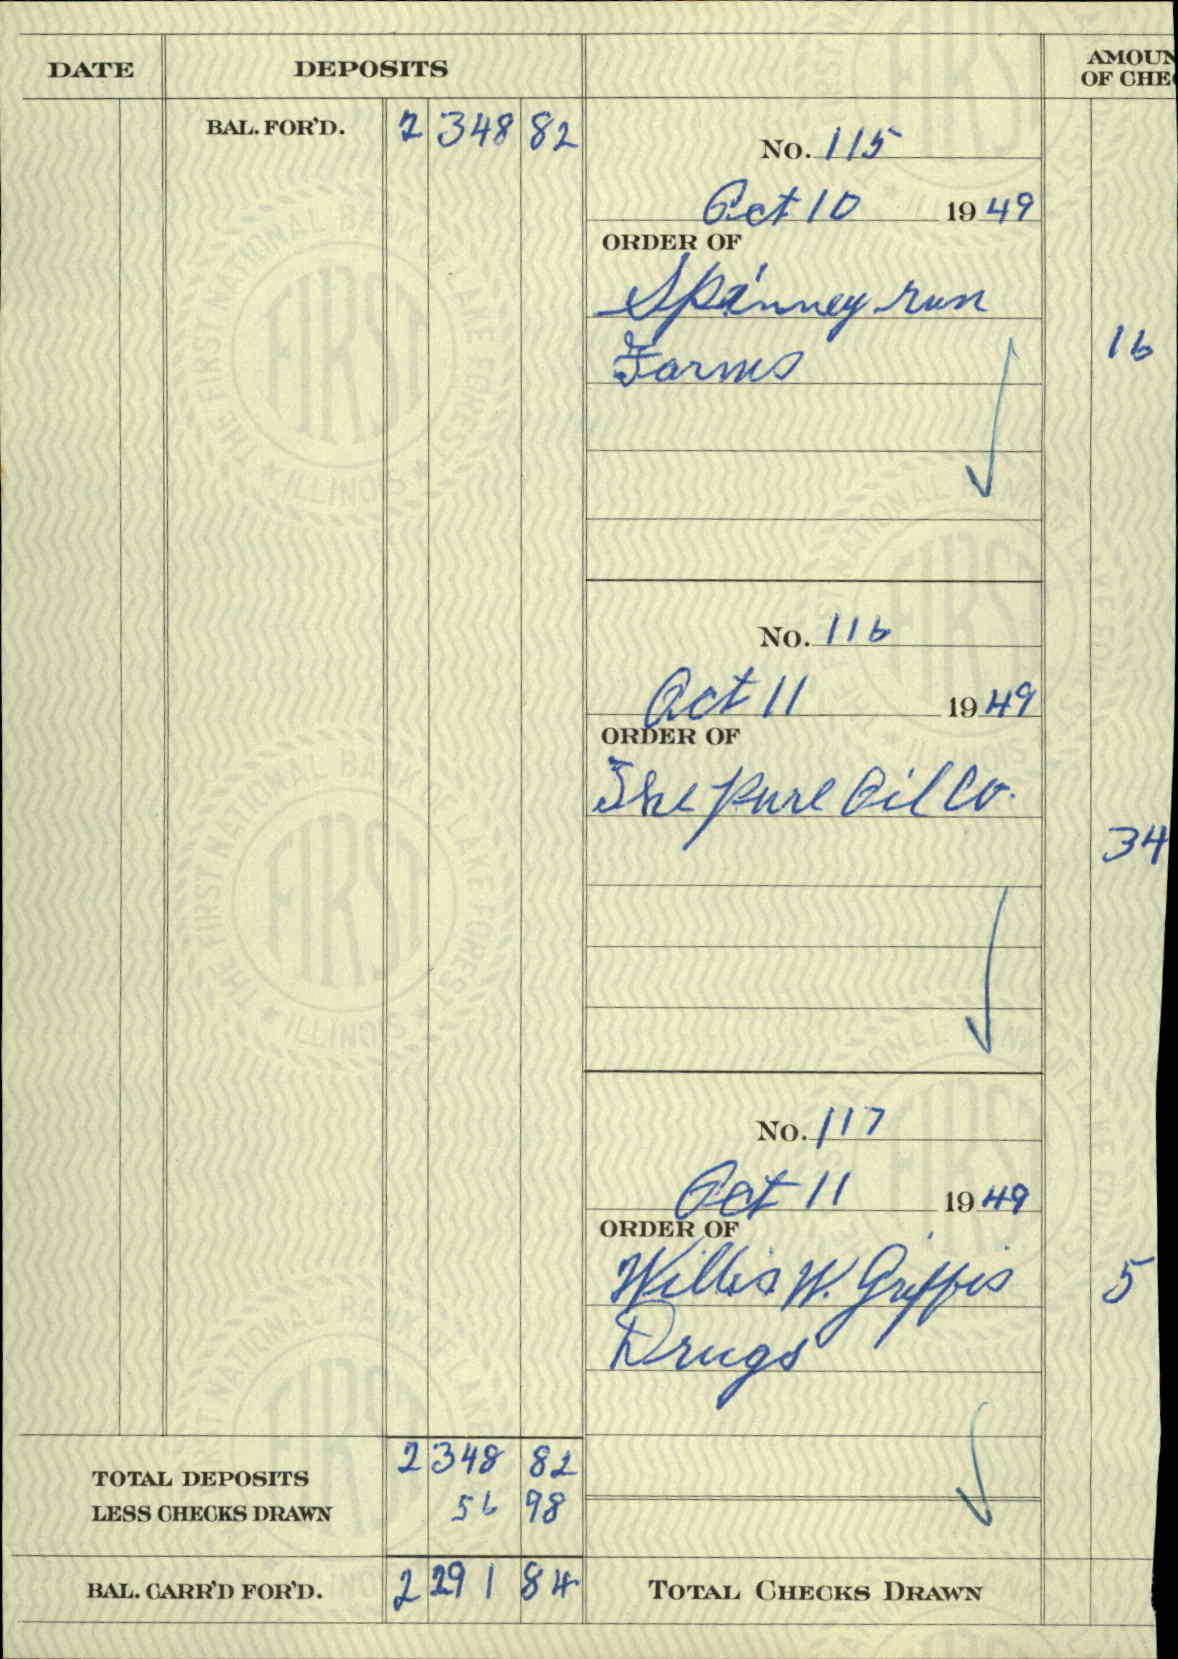 DATE DEPOSITS AMOUN
OF CHE
BAL. FOR'D. 2 348 82
No. 115
Oct 10 1949
ORDER OF
Spinney run
Farms
16
No. 116
Oct 11 1949
ORDER OF
The Pure Oil Co.
34
No. 117
Oct 11 1949
ORDER OF
Willis W. Griffis
Drugs
5
TOTAL DEPOSITS 2 348 82
LESS CHECKS DRAWN 56 98
BAL. CARR'D FOR'D. 2 291 84
TOTAL CHECKS DRAWN
THE FIRST NATIONAL BANK OF LAKE FOREST
FIRST
ILLINOIS